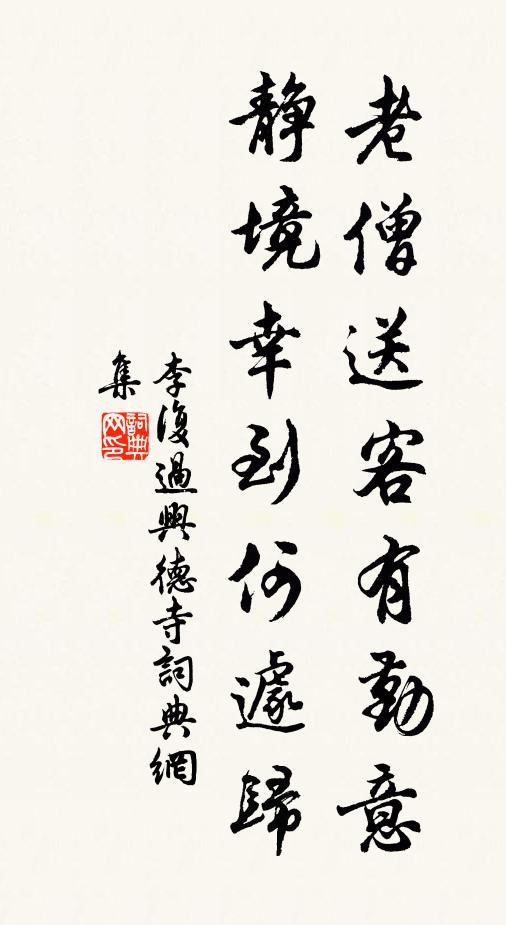 老僧送客有勤意
静境幸到何遽歸
李復過興德寺詞典網
集
詞典
网印